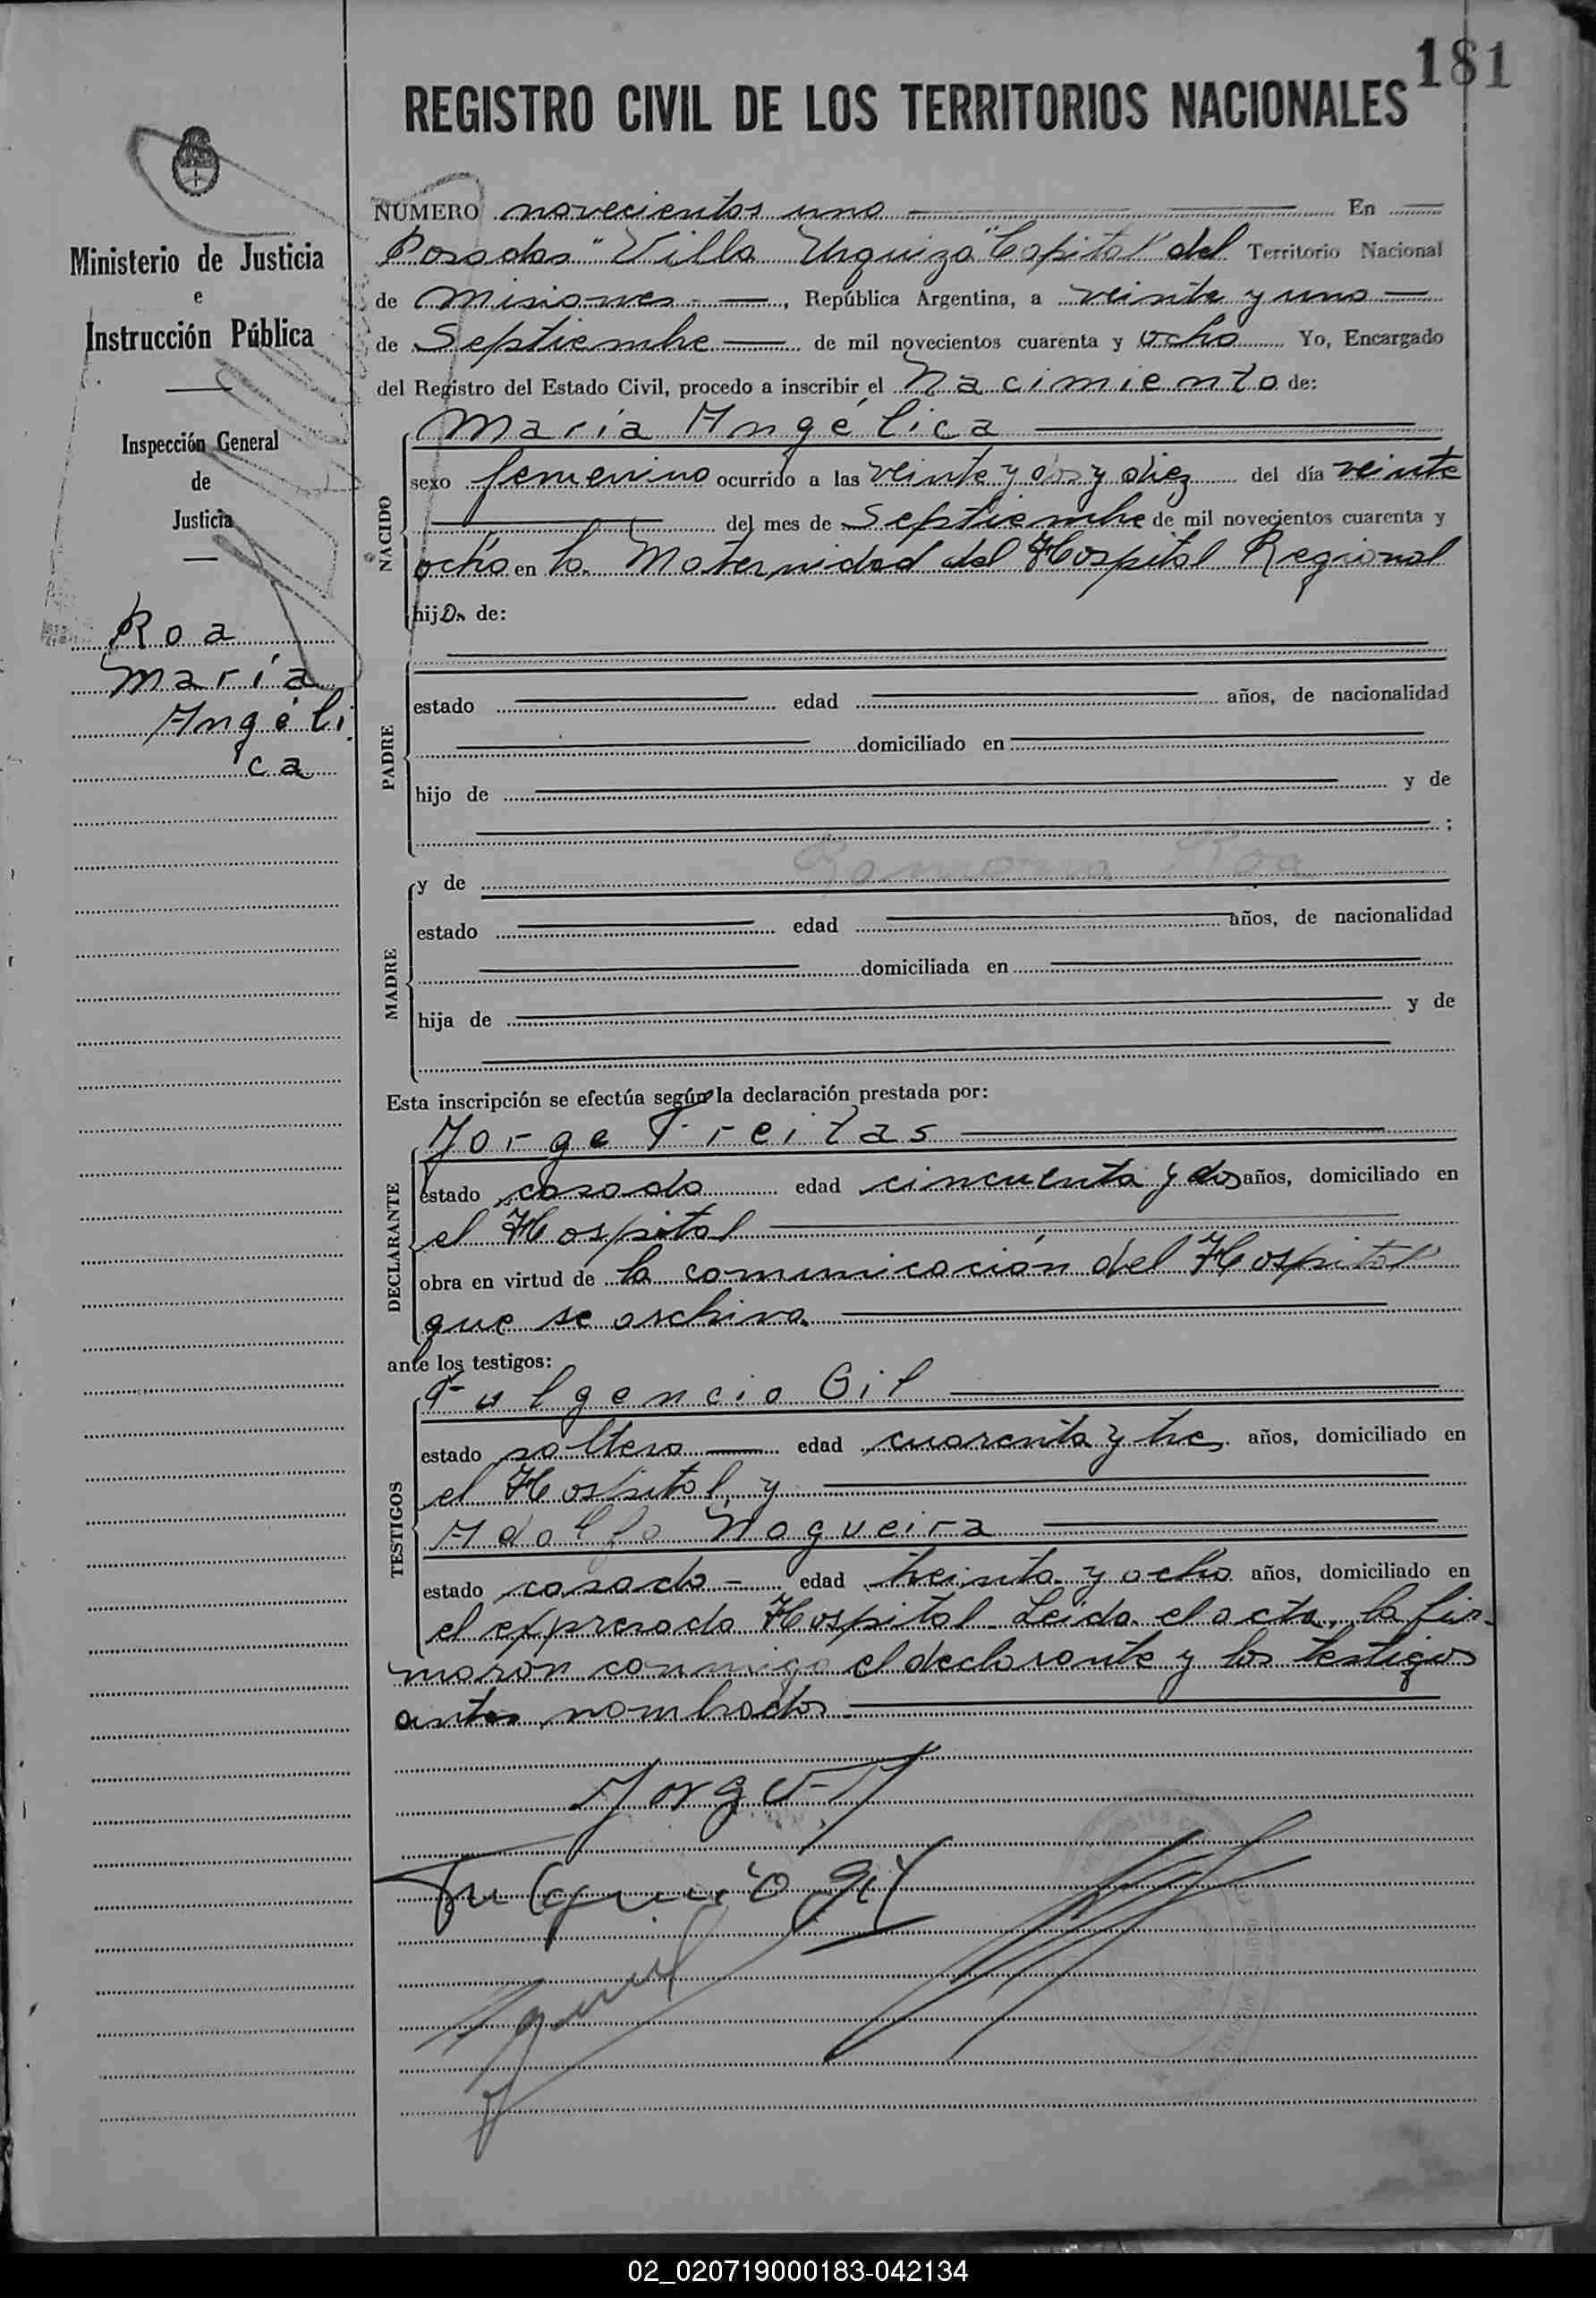 181
REGISTRO CIVIL DE LOS TERRITORIOS NACIONALES
Ministerio de Justicia
e
Instrucción Pública
Inspección General
de
Justicia
Roa
María
Angéli
ca
NÚMERO novecientos uno En
Posadas "Villa Urquiza" Capital del Territorio Nacional
de Misiones, República Argentina, a veinte y uno
de Septiembre de mil novecientos cuarenta y ocho Yo, Encargado
del Registro del Estado Civil, procedo a inscribir el Nacimiento de:
NACIDO
María Angélica
sexo femenino ocurrido a las veinte y dos y diez del día veinte
del mes de Septiembre de mil novecientos cuarenta y
ocho en la Maternidad del Hospital Regional
hija de:
PADRE
estado edad años, de nacionalidad
domiciliado en
hijo de y de
;
MADRE
y de Ramona Roa
estado edad años, de nacionalidad
domiciliada en
hija de y de
Esta inscripción se efectúa según la declaración prestada por:
DECLARANTE
Jorge Freitas
estado casado edad cincuenta y dos años, domiciliado en
el Hospital
obra en virtud de la comunicación del Hospital
que se archiva
ante los testigos:
TESTIGOS
Fulgencio Gil
estado soltero edad cuarenta y tres años, domiciliado en
el Hospital y
Adolfo Nogueira
estado casado edad treinta y ocho años, domiciliado en
el expresado Hospital. Leida el acta, la fir-
maron conmigo el declarante y los testigos
antes nombrados.
Jorge F
Fulgencio Gil
02_020719000183-042134